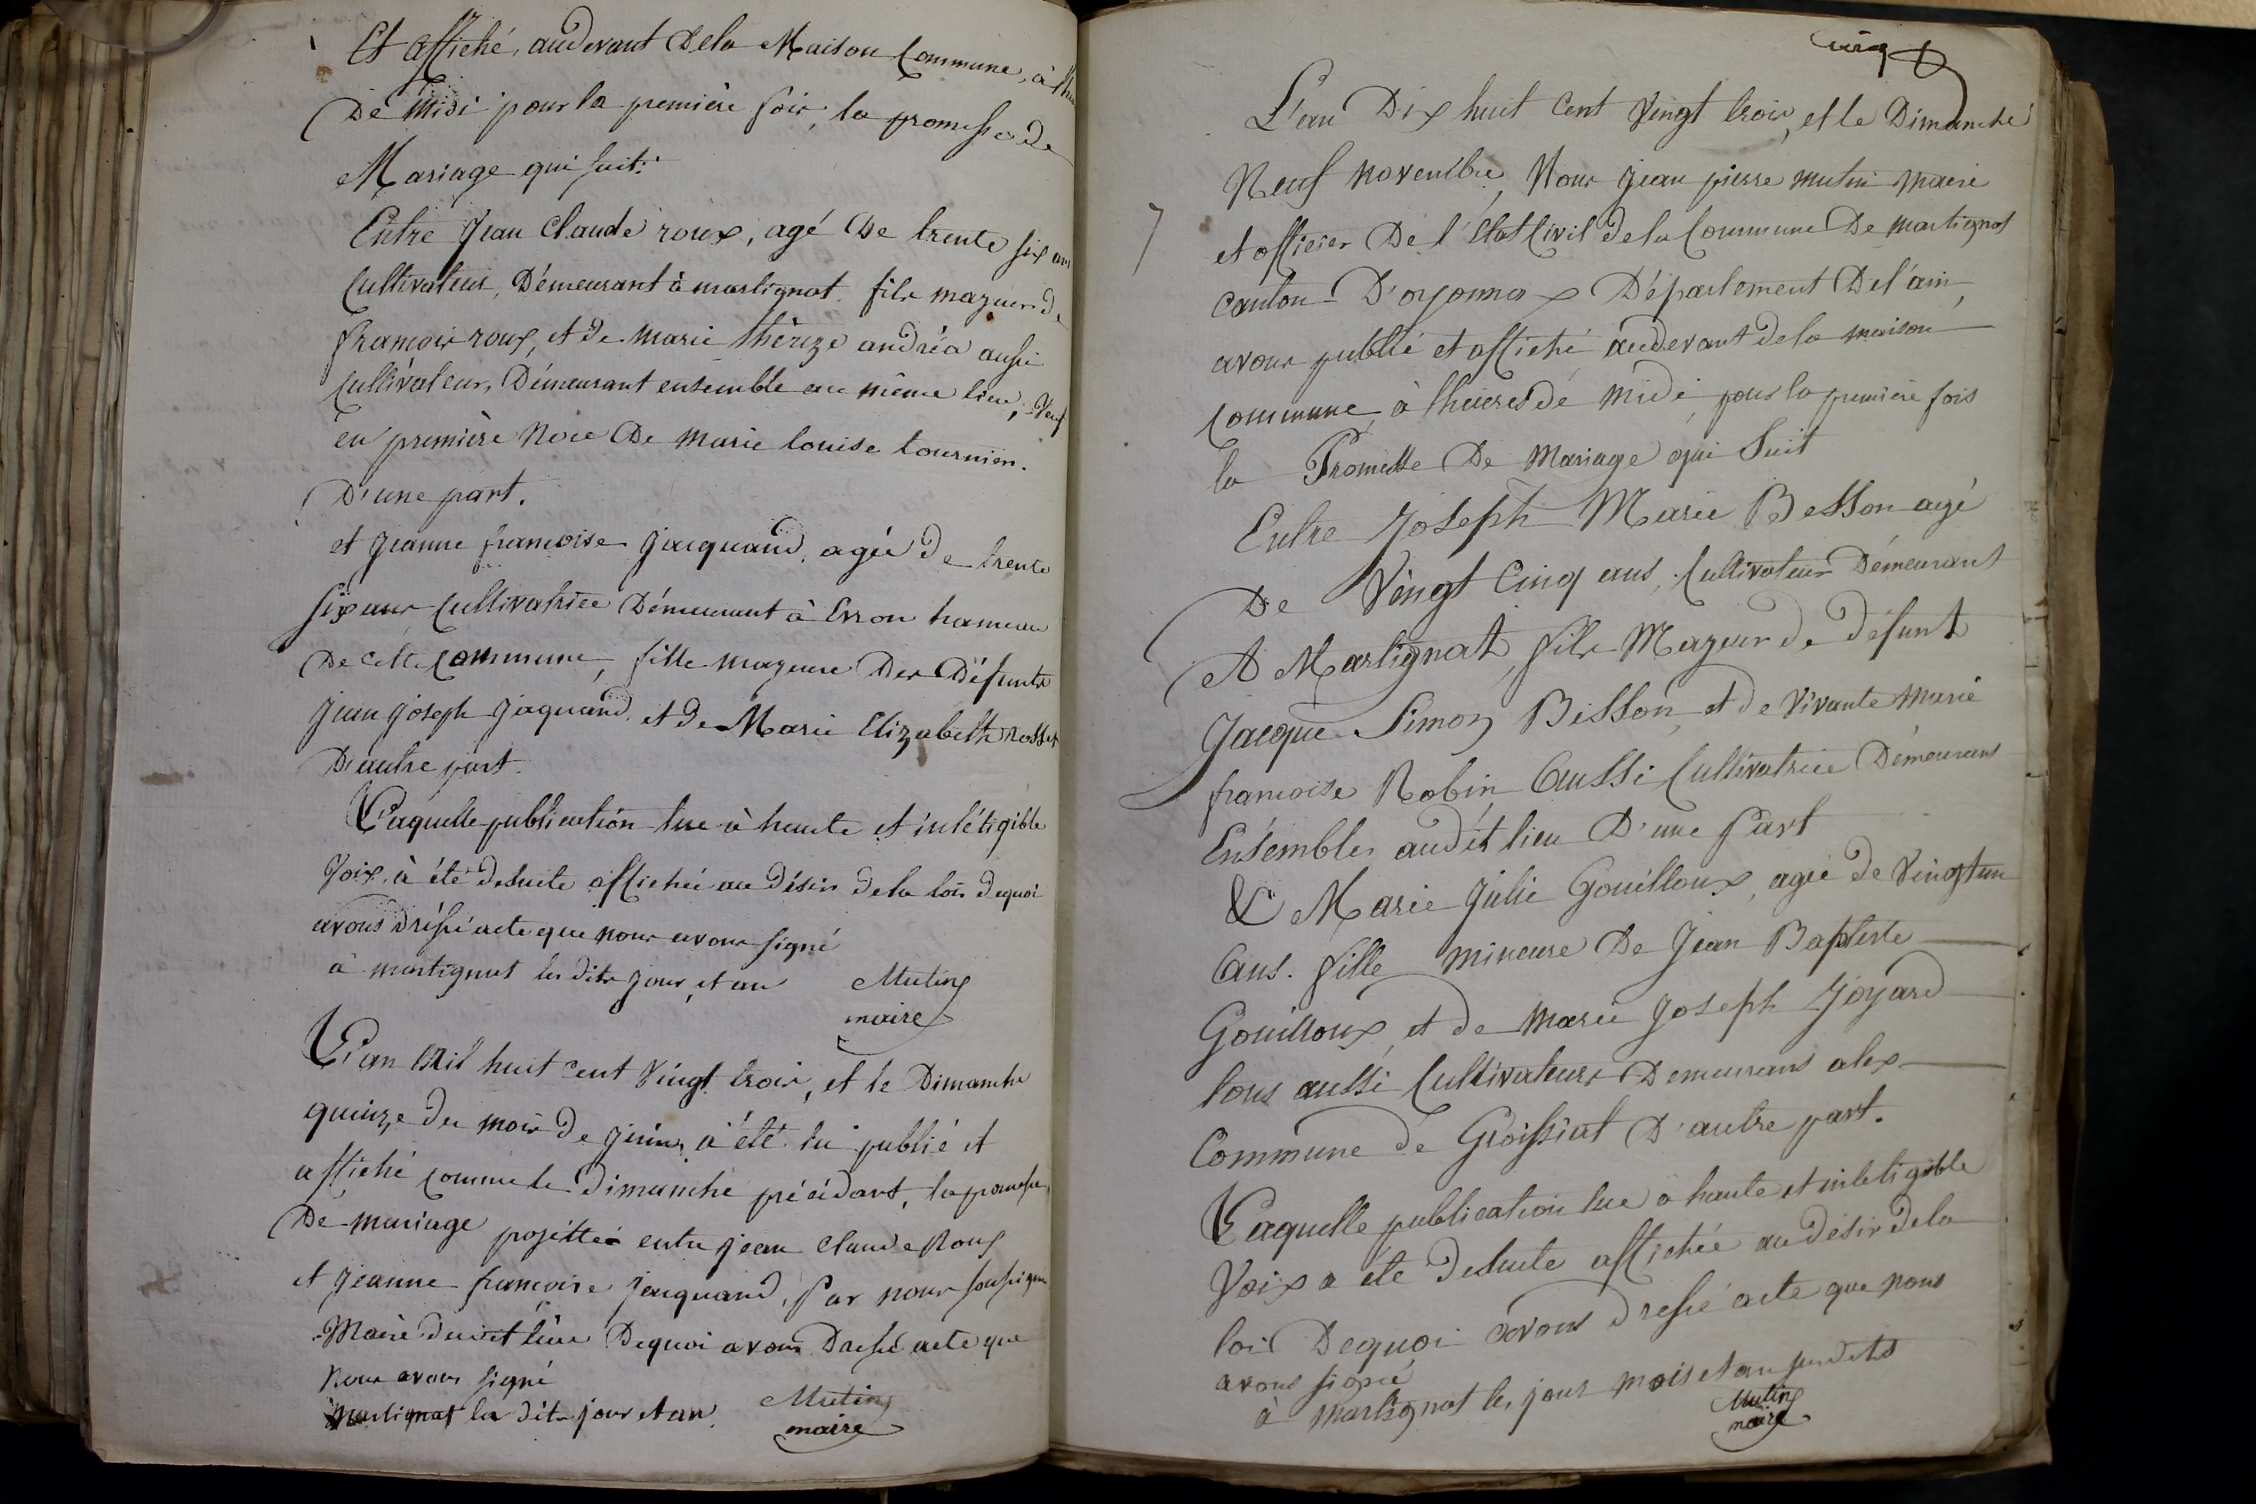 Et affiché, audevant dela Maison Commune, à
De Midi pour la première fois, la promesse de
Mariage qui suit.
Entre Jean Claude roux, agé De trente six ans
Cultivateur, Démeurant à martignat. fils mazeur de
françois roux, et de marie thèreze andréa aussi
Cultivateur, Démeurant ensemble au même lieu, Veuf
en première Noce De marie louise tournier.
D'une part.
et jeanne françoise jacquand, agée De trente
six ans Cultivatrice Démeurant à Evron hameau
De cette Commune, fille mazeure Des Défunts
jean joseph jaquand, et de Marie Elizabeth rosset
D'autre part.
Laquelle publication lue à haute et intéligible
Voix, à été desuite affichée au désir dela loi, dequoi
avons dréssé acte que nous avons signé
à martignat les dits jour, et an
Mutin
maire
L'an Mil huit cent Vingt trois, et le Dimanche
quinze du mois de juin, à été lu publié et
affiché comme le Dimanche précédant, la promesse
De mariage projéttée entre jean Claude Roux
et jeanne françoise jacquand, Par nous soussigné
Maire dudit lieu Dequoi avons Dressé acte que
Nous avons signé
Martignat les dits jour et an.
Mutin
maire
cinq
L'an Dix huit Cent Vingt trois, et le Dimanche
Neuf novembre, Nous jean pierre mutin Maire
7
et officier De l'état Civil dela Commune De martignat
canton D'oyonnax Département De l'ain,
avons publié et affiché audevant dela maison
Commune, à lheures de midi pour la première fois
la Promesse De Mariage qui Suit
Entre Joseph Marie Besson agé
De Vingt Cinq ans, Cultivateur Démeurant
A Martignat, fils Mazeur de défunt
Jacque Simon Besson, et de Vivante Marie
francoise Robin Aussi Cultivatrice Démeurans
Ensembles audit lieu D'une Part
& Marie Julie Gouilloux, agée de Vingt un
Ans. fille mineure De Jean Baptiste
Gouilloux, et de Marie Joseph Joyard
tous aussi Cultivateurs Demeurans alex
Commune de Groissiat D'autre part.
Laquelle publication lue à haute et inteligible
Voix a été desuite affichée au désir dela
loi Dequoi avons dressé acte que nous
avons signé
à martignat les jour mois et an susdits
Mutin
maire